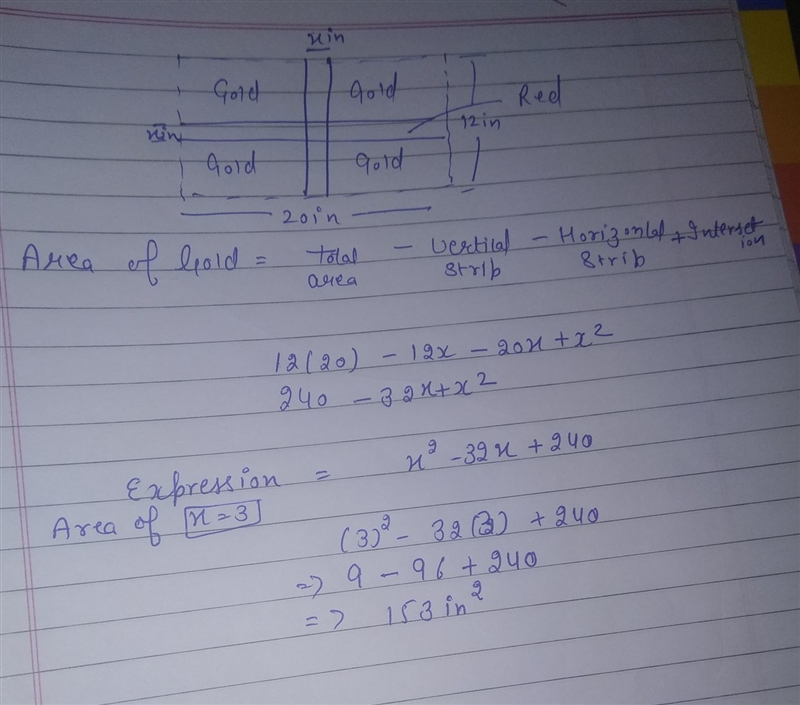 x in
Gold Gold Red
x in 12 in
Gold Gold
20 in
Area of Gold = Total area - Vertical Strip - Horizontal Strip + Intersection
12(20) - 12x - 20x + x²
240 - 32x + x²
Expression = x² - 32x + 240
Area of x = 3
(3)² - 32(3) + 240
=> 9 - 96 + 240
=> 153 in²